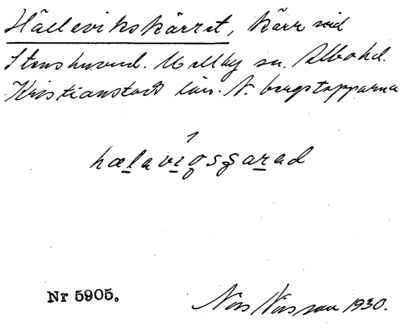 Hällevikskärret, kärr vid
Stenshuvud. Mellby sn. Albo hd.
Kristianstads län. N. bergstopparna
hælavıqsʂarad
Nr 5905.
Nils Nilsson 1930.